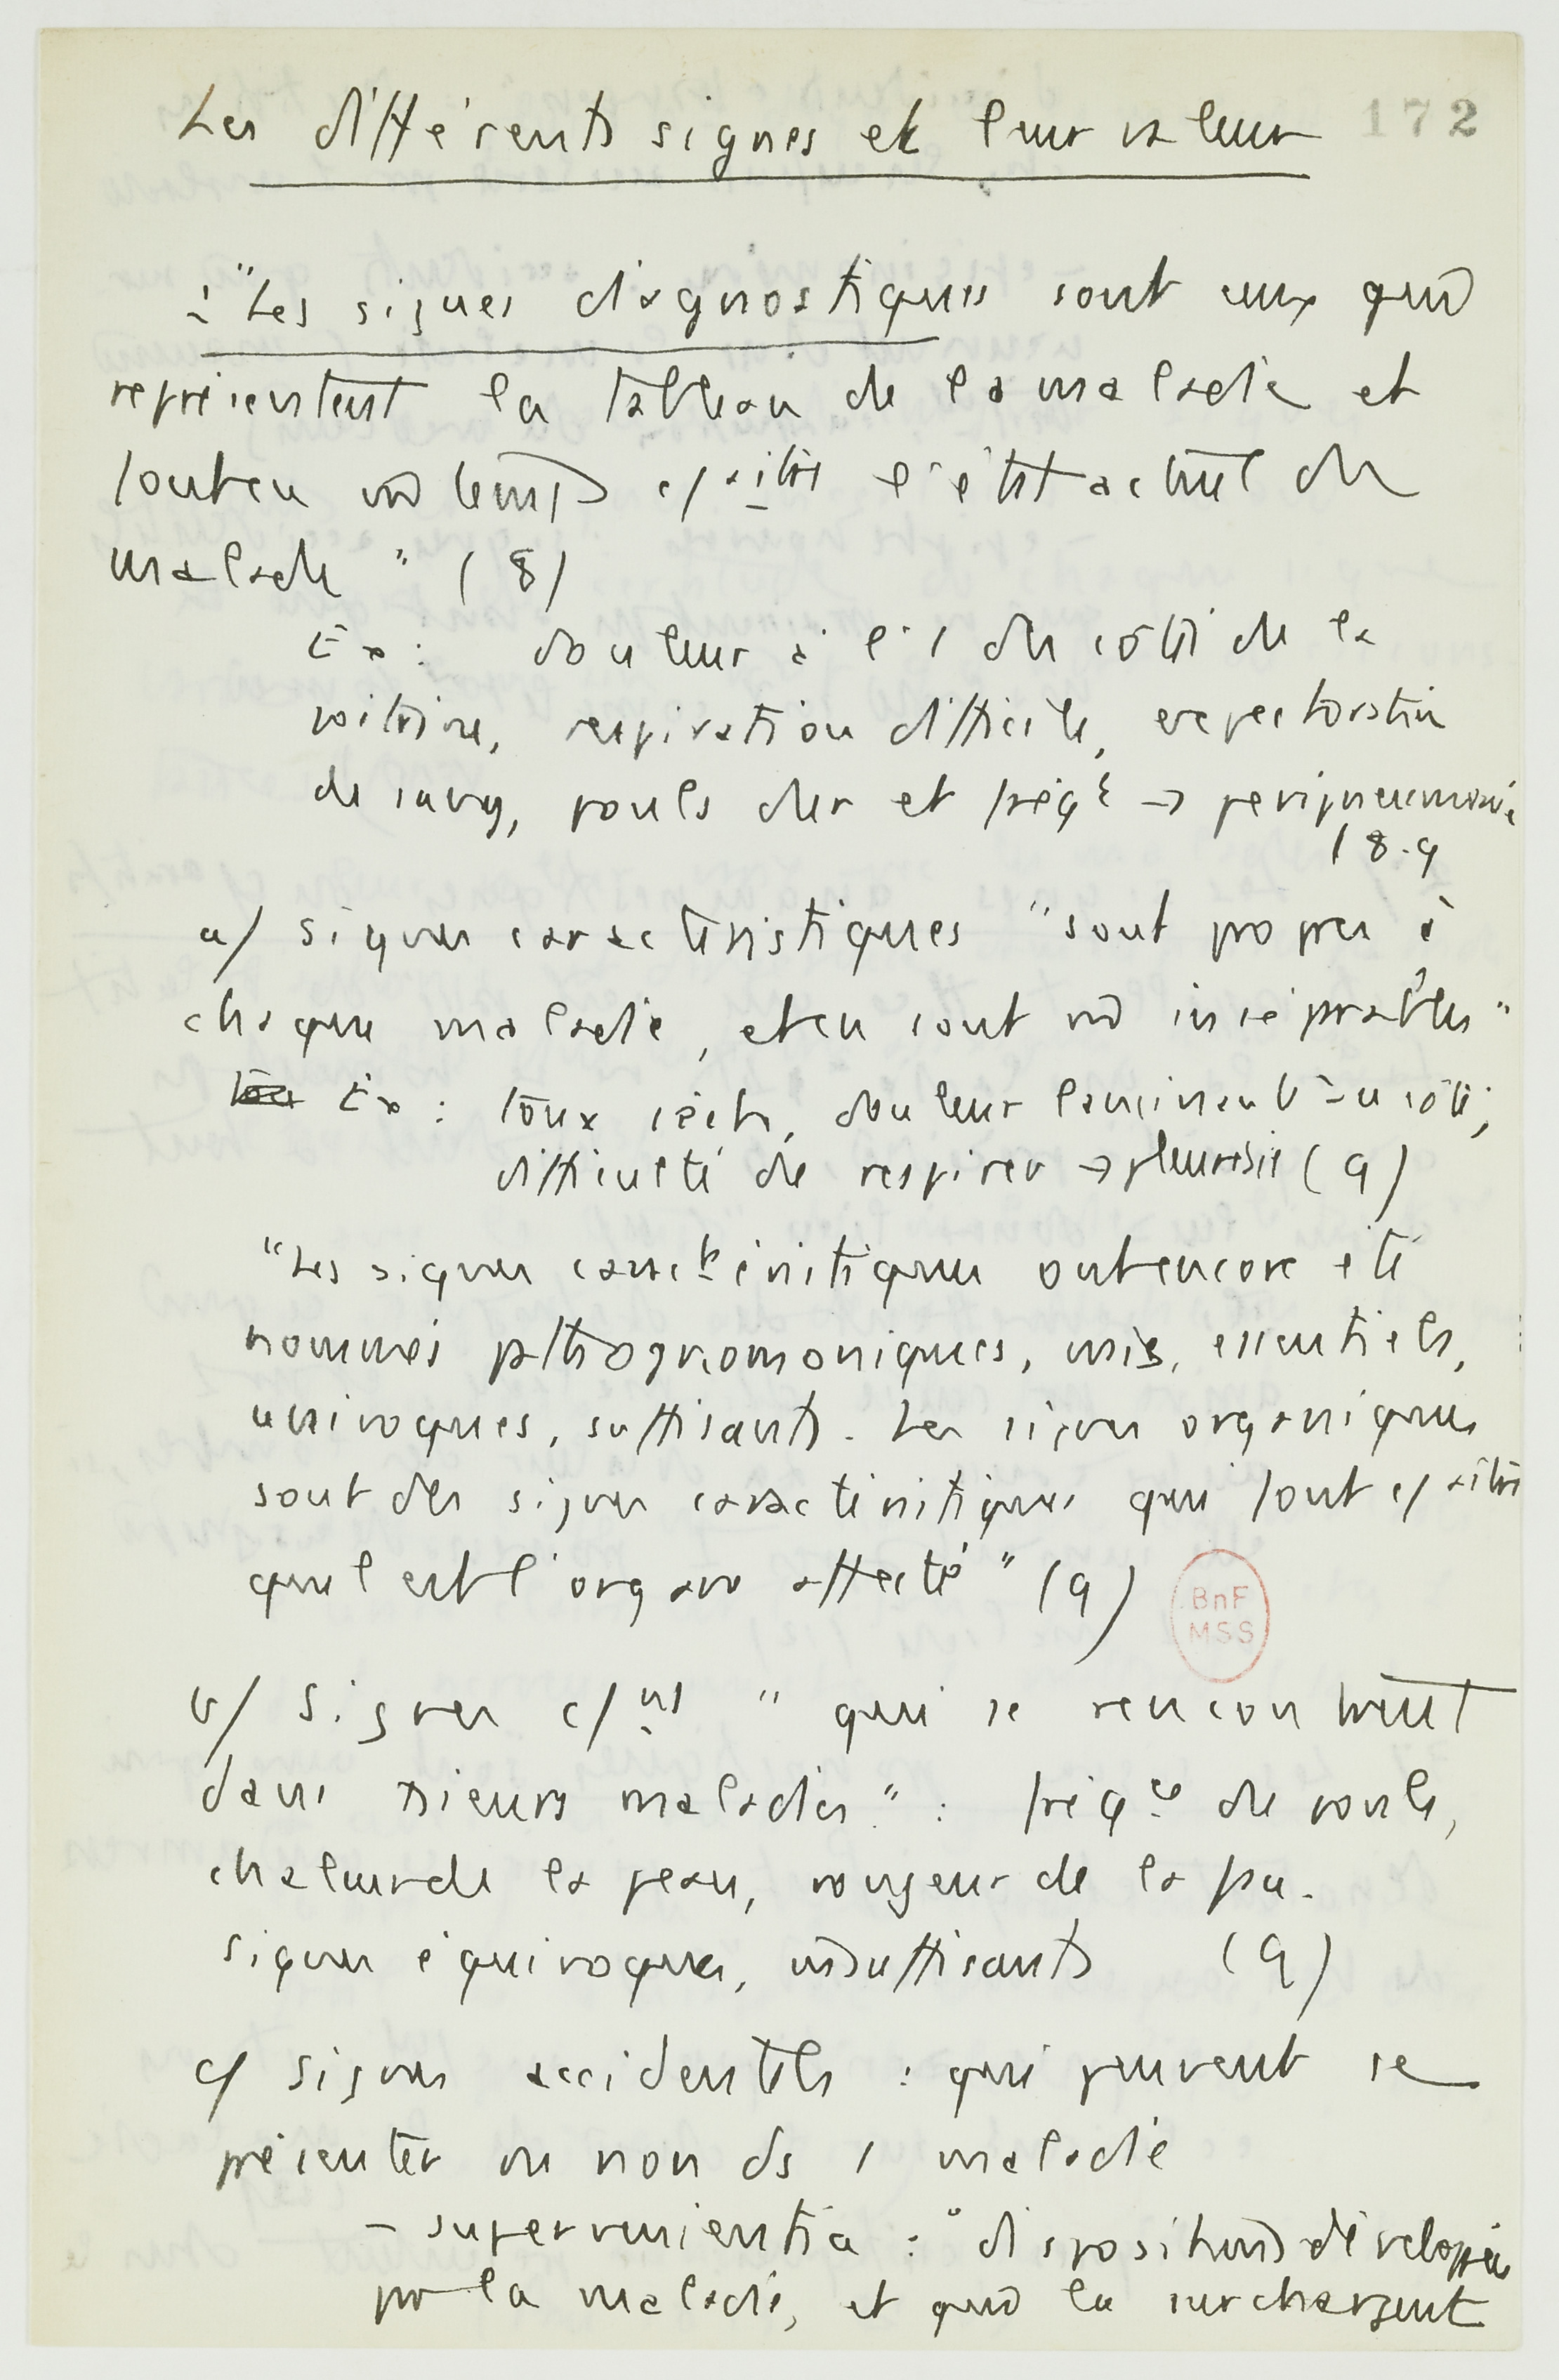 172
Les différents signes et leur valeur
: "Les signes diagnostiques sont ceux qui
représentent le tableau de la maladie et
font en m̂ temps c/aître l'état actuel du
malade" (8)
Ex : douleur à l'1 des côtés de la
poitrine, respiration difficile, expectoration
de sang, pouls dur et fréqt → peripneumonie
(8.9
a/ signes caractéristiques "sont propres à
chaque maladie, et en sont inséparables"
Ex : toux sèche, douleur lancinante au côté,
difficulté de respirer → pleurésie (9)
"Les signes caractéristiques ont encore été
nommés pathognomoniques, vrais, essentiels,
univoques, suffisants. Les signes organiques
sont des signes caractéristiques qui font c/aître
quel est l'organe affecté" (9)
BnF
MSS
b/ Signes c/uns "qui se rencontrent
dans +sieurs maladies" : fréqce de pouls,
chaleur de la peau, rougeur de la face.
signes équivoques, insuffisants (9)
c/ signes accidentels : qui peuvent se
présenter ou non ds 1 maladie
- supervenientia : "dispositions développées
par la maladie, et qui la surchargent